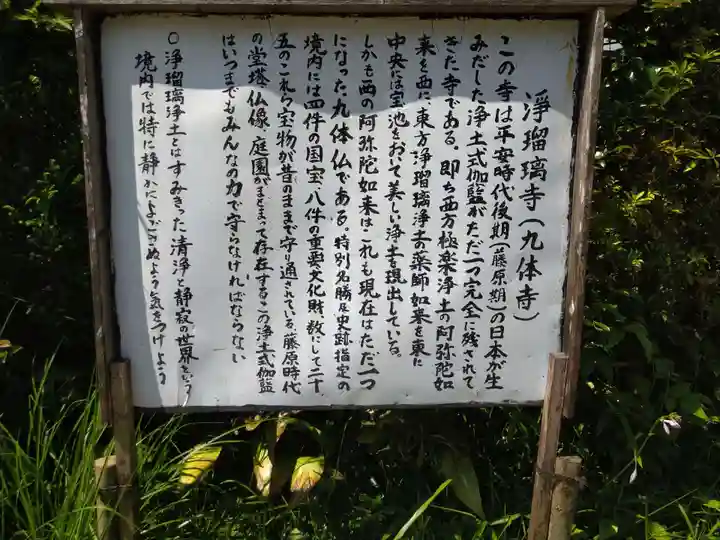 浄瑠璃寺(九体寺)
この寺は平安時代後期(藤原期)の日本が生
みだした浄土式伽藍がただ一つ完全に残されて
きた寺である。即ち西方極楽浄土の阿弥陀如
来を西に東方浄瑠璃浄土の薬師如来を東に
中央には宝池をおいて美しい浄土を現出している。
しかも西の阿弥陀如来はこれも現在はただ一つ
になった九体仏である。特別名勝及史跡指定の
境内には四件の国宝、八件の重要文化財、数にして二十
五のこれら宝物が昔のままで守り通されている、藤原時代
の堂塔、仏像、庭園がまとまって存在するこの浄土式伽藍
はいつまでもみんなの力で守らなければならない
○浄瑠璃浄土とはすみきった清浄と静寂の世界という
境内では特に静かによごさぬよう気をつけよう